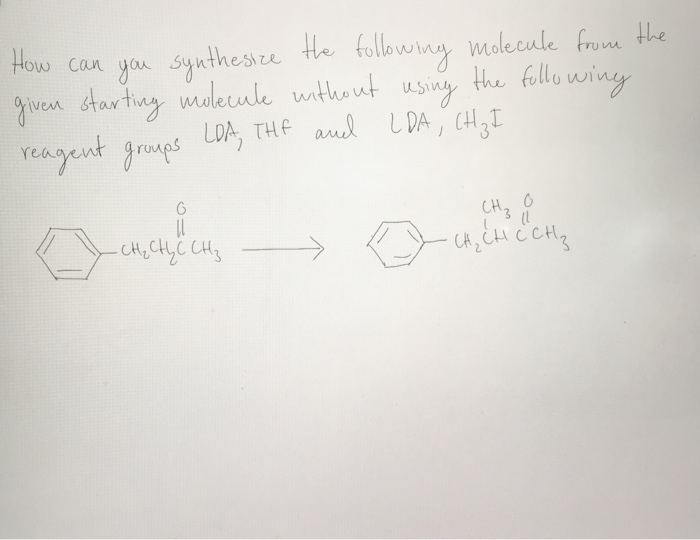 How can you synthesize the following molecule from the
given starting molecule without using the following
reagent groups LDA, THF and LDA, CH₃I
O
CH₃ O
-CH₂CH₂CCH₃
-CH₂CHCCH₃